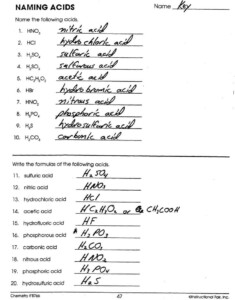 NAMING ACIDS Name Key
Name the following acids.
1. HNO₃ nitric acid
2. HCl hydrochloric acid
3. H₂SO₄ sulfuric acid
4. H₂SO₃ sulfurous acid
5. HC₂H₃O₂ acetic acid
6. HBr hydrobromic acid
7. HNO₂ nitrous acid
8. H₃PO₄ phosphoric acid
9. H₂S hydrosulfuric acid
10. H₂CO₃ carbonic acid
Write the formulas of the following acids.
11. sulfuric acid H₂SO₄
12. nitric acid HNO₃
13. hydrochloric acid HCl
14. acetic acid HC₂H₃O₂ or CH₃COOH
15. hydrofluoric acid HF
16. phosphorous acid H₃PO₃
17. carbonic acid H₂CO₃
18. nitrous acid HNO₂
19. phosphoric acid H₃PO₄
20. hydrosulfuric acid H₂S
Chemistry IF8766 62 ©Instructional Fair, Inc.